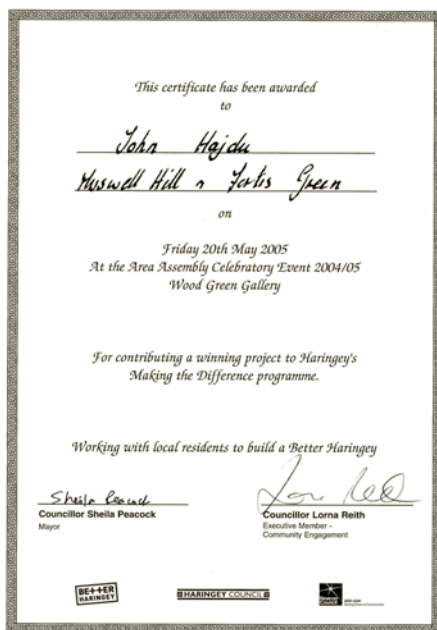 This certificate has been awarded
to
John Hajdu
Muswell Hill n Fortis Green
on
Friday 20th May 2005
At the Area Assembly Celebratory Event 2004/05
Wood Green Gallery
For contributing a winning project to Haringey's
Making the Difference programme.
Working with local residents to build a Better Haringey
Sheila Peacock
Councillor Sheila Peacock
Mayor
Councillor Lorna Reith
Executive Member -
Community Engagement
BETTER
HARINGEY
HARINGEY COUNCIL